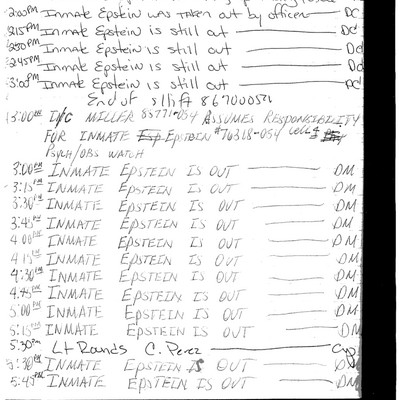 2:00PM Inmate Epstein was taken out by officer — DC
2:15PM Inmate Epstein is still out — DC
2:30PM Inmate Epstein is still out — DC
2:45PM Inmate Epstein is still out — DC
3:00PM Inmate Epstein is still out — DC
End of shift
3:00PM I/C MILLER ASSUMES RESPONSIBILITY
FOR INMATE EPSTEIN #76318-054
PSYCH/OBS WATCH
3:00PM INMATE EPSTEIN IS OUT — DM
3:15PM INMATE EPSTEIN IS OUT — DM
3:30PM INMATE EPSTEIN IS OUT — DM
3:45PM INMATE EPSTEIN IS OUT — DM
4:00PM INMATE EPSTEIN IS OUT — DM
4:15PM INMATE EPSTEIN IS OUT — DM
4:30PM INMATE EPSTEIN IS OUT — DM
4:45PM INMATE EPSTEIN IS OUT — DM
5:00PM INMATE EPSTEIN IS OUT — DM
5:15PM INMATE EPSTEIN IS OUT — DM
5:30PM Lt Rounds C. Perez —
5:30PM INMATE EPSTEIN IS OUT — DM
5:45PM INMATE EPSTEIN IS OUT — DM